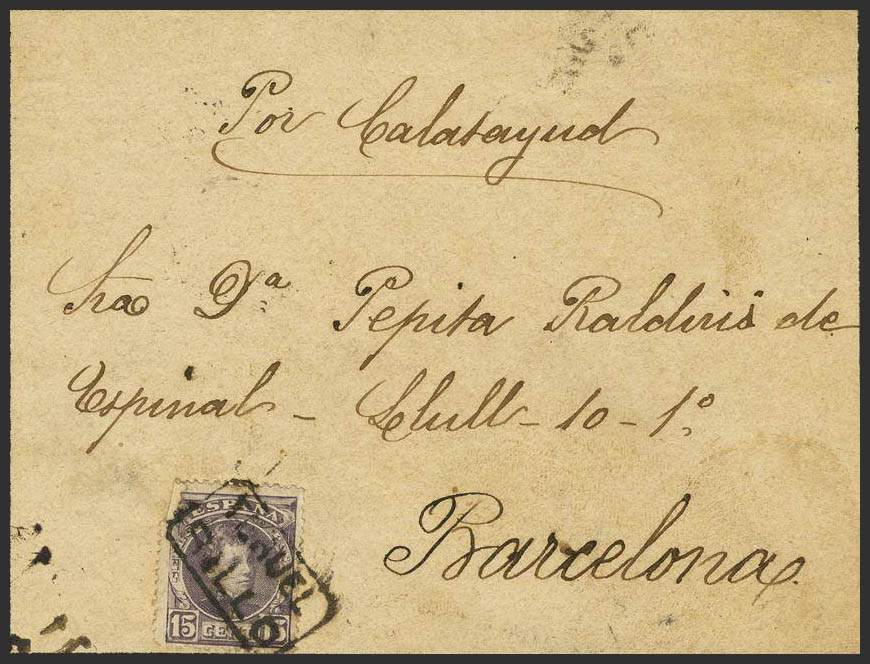 Por Calatayud
Sra Dª Pepita Raldiris de
Espinal - Llull - 10 - 1º
Barcelona
ESPAÑA
TERUEL
15